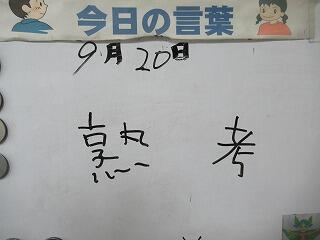 今日の言葉
9月20日
熟 考